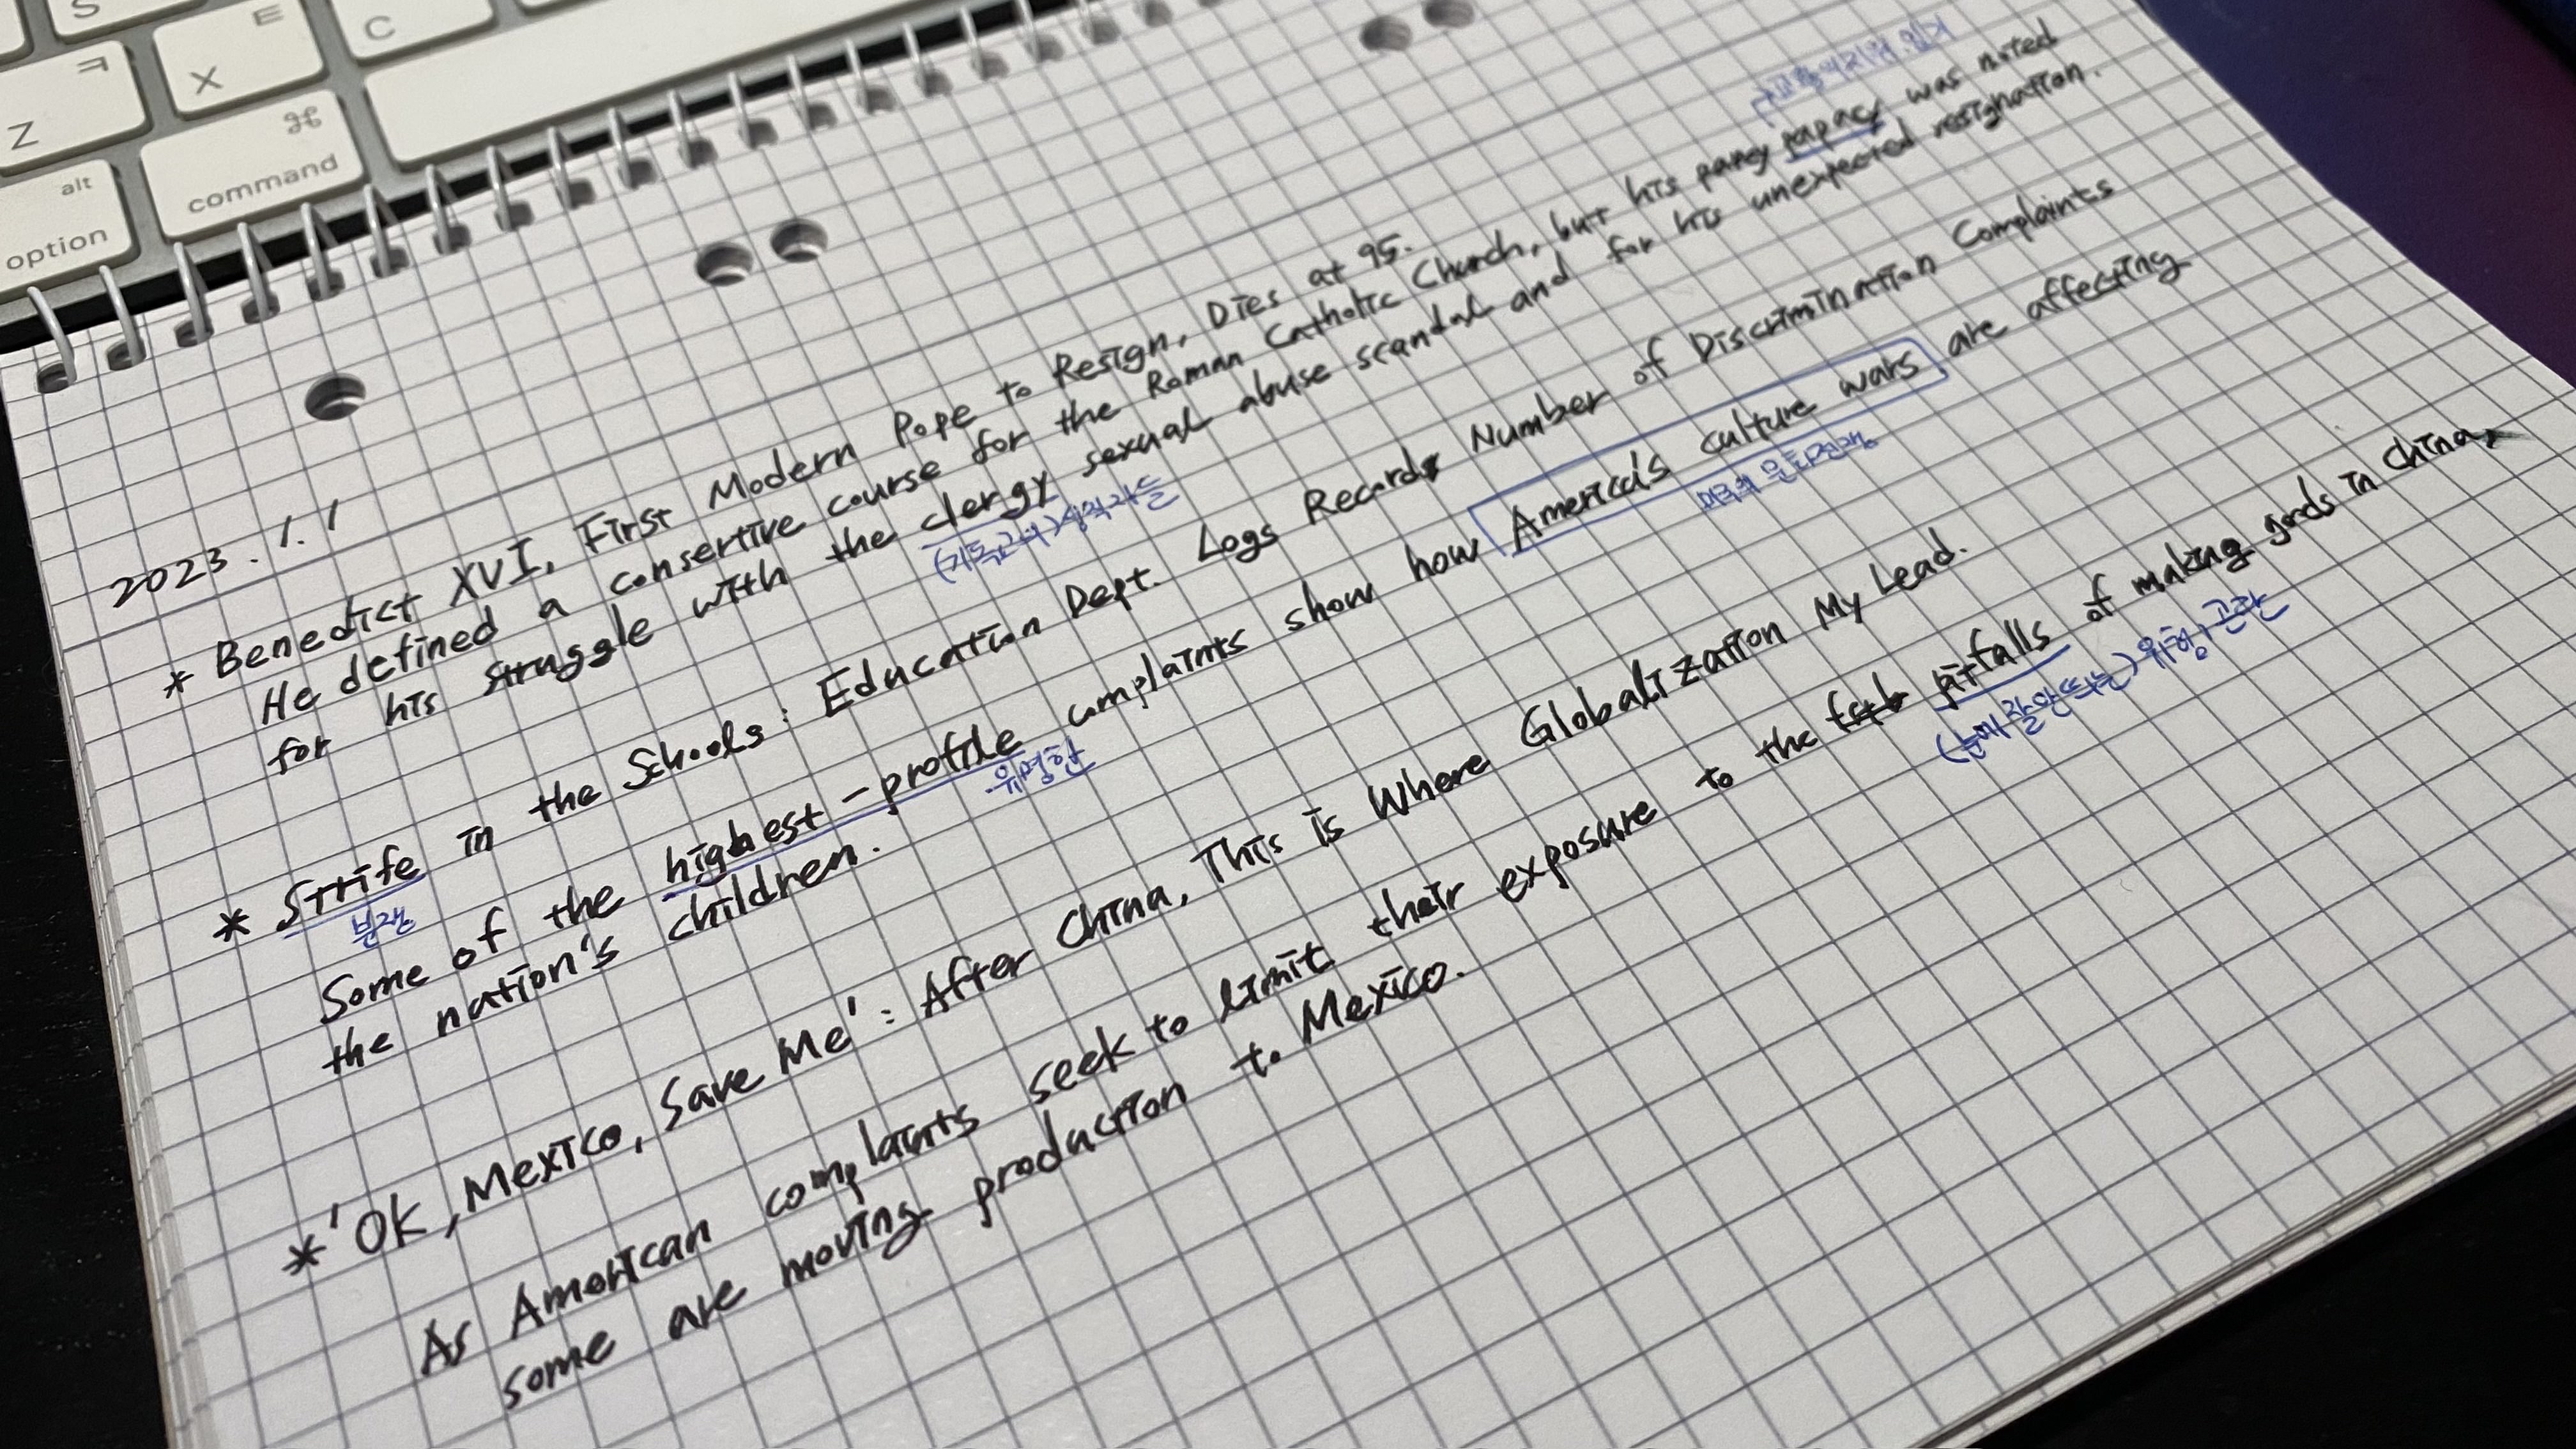 S
E
C
ㅋ
Z
X
⌘
command
alt
option
2023. 1. 1
* Benedict XVI, First Modern Pope to Resign, Dies at 95.
He defined a consertive course for the Roman Catholic Church, but his papacy was noted
for his struggle with the clergy sexual abuse scandal and for his unexpected resignation.
(기독교의) 성직자들
* Strife in the Schools: Education Dept. Logs Record Number of Discrimination Complaints
분쟁
Some of the highest-profile complaints show how America's culture wars are affecting
유명한
미국의 문화전쟁
the nation's children.
* 'Ok, Mexico, Save Me': After China, This is Where Globalization My Lead.
As American complaints seek to limit their exposure to the pitfalls of making goods in China,
(눈에 잘 안 띄는) 위험, 곤란
some are moving production to Mexico.